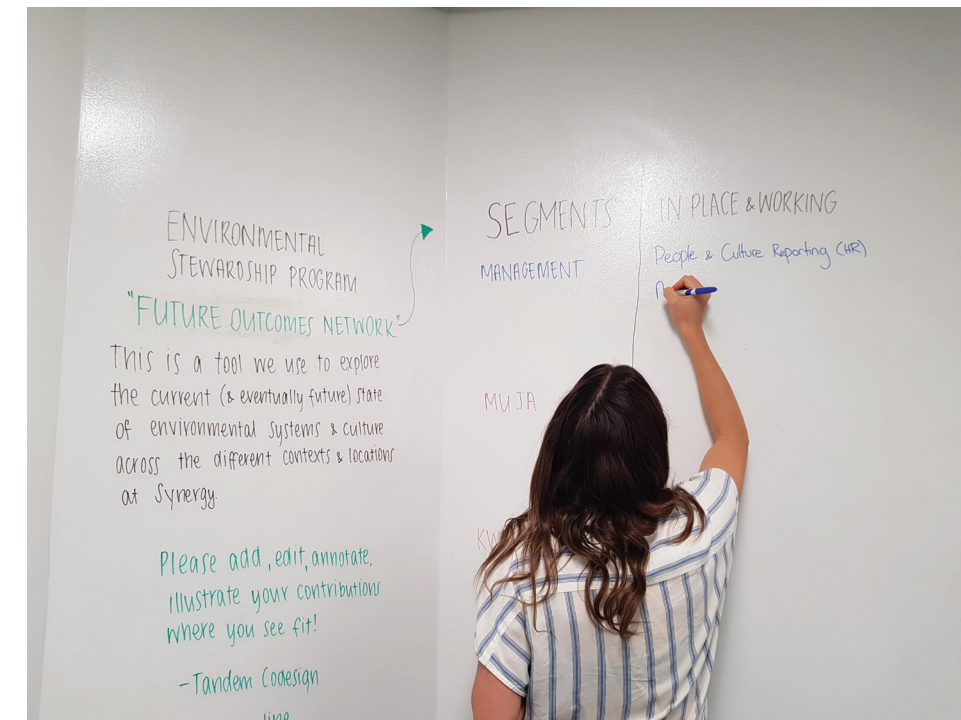 ENVIRONMENTAL
STEWARDSHIP PROGRAM
"FUTURE OUTCOMES NETWORK"
This is a tool we use to explore
the current (& eventually future) state
of environmental systems & culture
across the different contexts & locations
at Synergy.
Please add, edit, annotate,
illustrate your contributions
where you see fit!
-Tandem Codesign
SEGMENTS
IN PLACE & WORKING
MANAGEMENT
People & Culture Reporting (HR)
MUJA